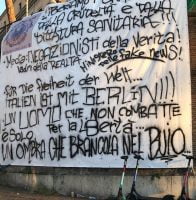 DELLA CRUDELTÀ E DELLA
DITTATURA SANITARIA!
Media: NEGAZIONISTI della Verità!
della REALTÀ. fake news!
Für die Freiheit der Welt...
ITALIEN IST MIT BERLIN!!!
UN UOMO CHE NON COMBATTE
per la libertà
È SOLO
UN'OMBRA CHE BRANCOLA NEL BUIO